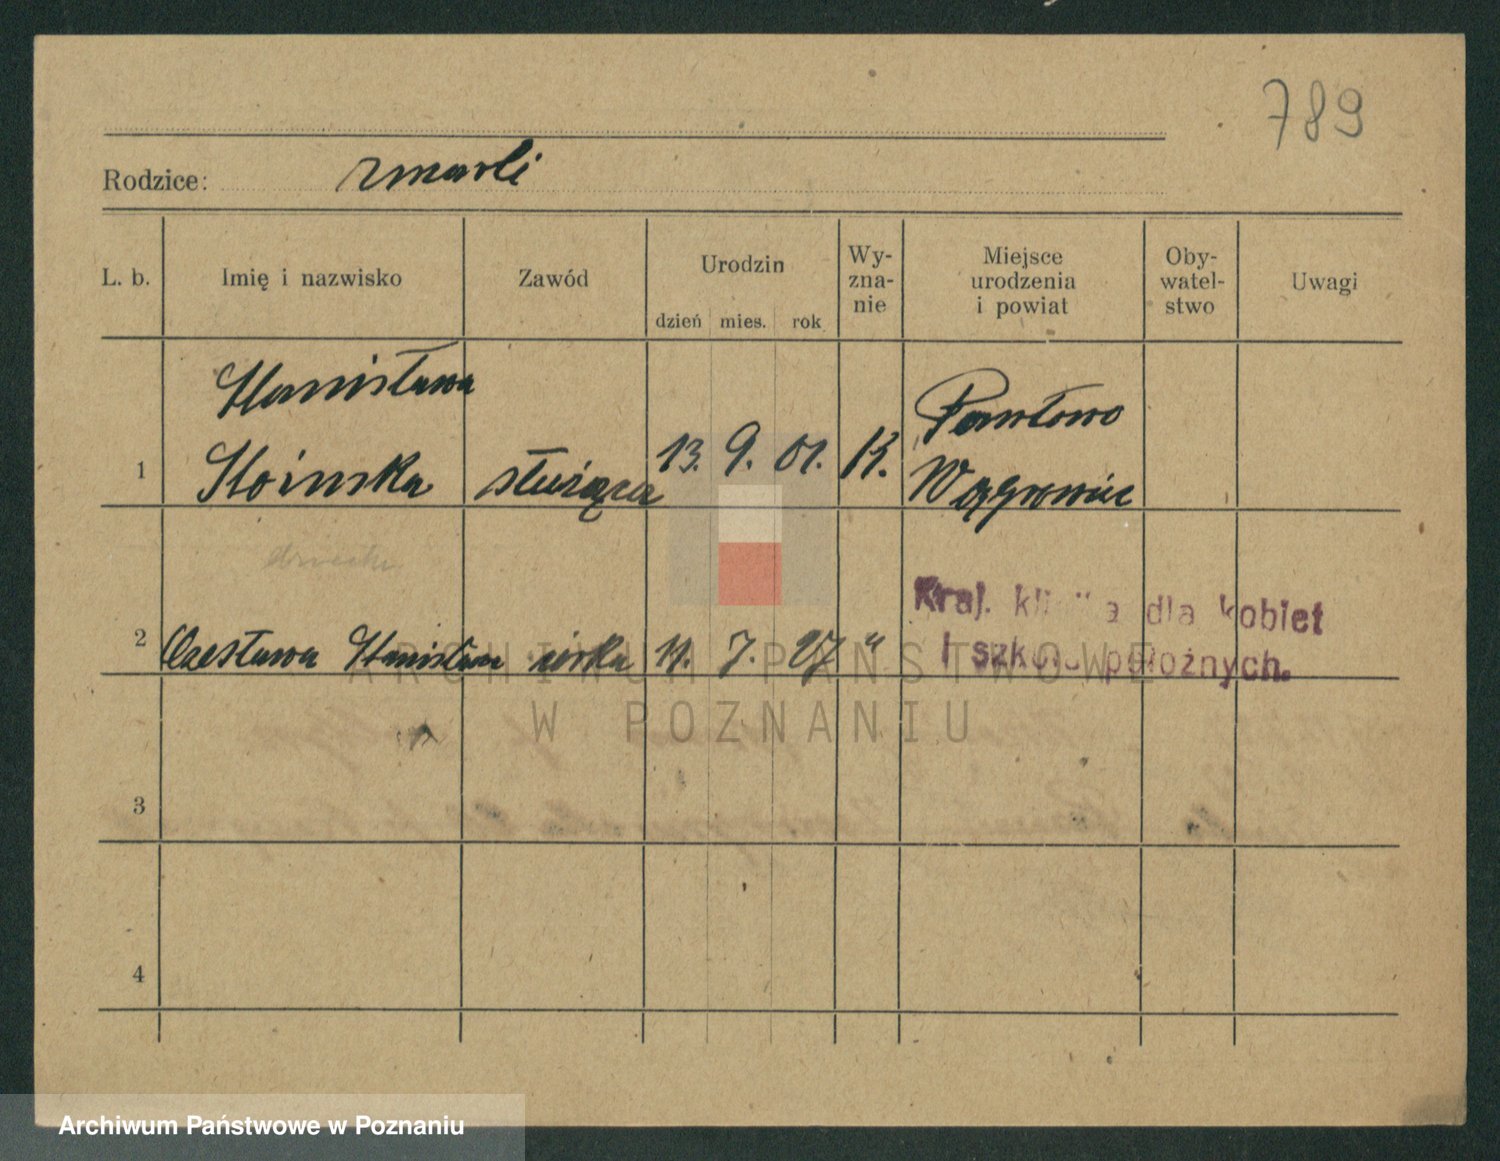 789
Rodzice: zmarli
L. b. Imię i nazwisko Zawód Urodzin Wy-zna-nie Miejsce urodzenia i powiat Oby-watel-stwo Uwagi
dzień mies. rok
Stanisława Pawłowo
1 Stoinska służąca 13. 9. 01. K. Wągrowiec
dziecko
Kraj. klinika dla kobiet
2 Czesława Stanisława córka 11. 7. 27 "
i szkoła położnych.
ARCHIWUM PAŃSTWOWE
W POZNANIU
3
4
Archiwum Państwowe w Poznaniu